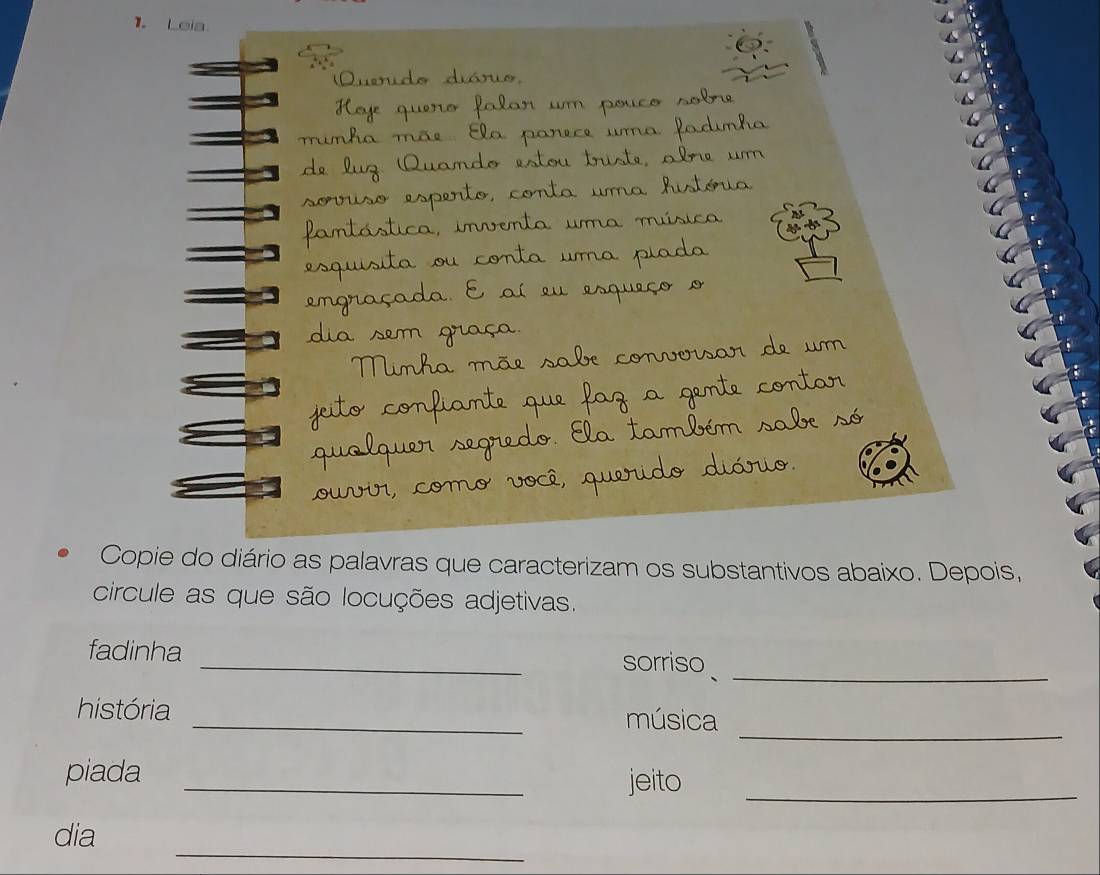 1. Leia.
Querido diário.
Hoje quero falar um pouco sobre
minha mãe. Ela parece uma fadinha
de luz. Quando estou triste, abre um
sorriso esperto, conta uma história
fantástica, inventa uma música
esquisita ou conta uma piada
engraçada. E aí eu esqueço o
dia sem graça.
Minha mãe sabe conversar de um
jeito confiante que faz a gente contar
qualquer segredo. Ela também sabe só
ouvir, como você, querido diário.
• Copie do diário as palavras que caracterizam os substantivos abaixo. Depois,
circule as que são locuções adjetivas.
fadinha
sorriso
história
música
piada
jeito
dia